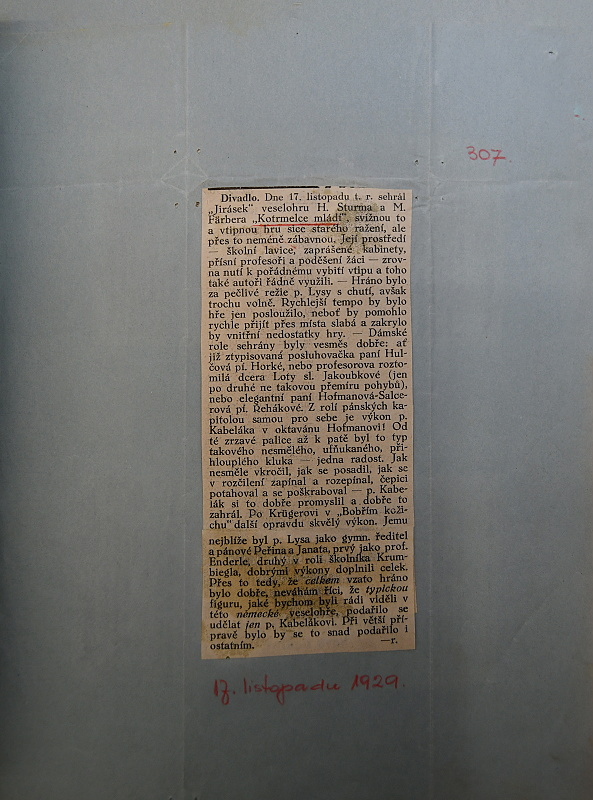 307.
Divadlo. Dne 17. listopadu t. r. sehrál
„Jirásek" veselohru H. Sturma a M.
Färbera „Kotrmelce mládí", svižnou to
a vtipnou hru sice starého ražení, ale
přes to neméně zábavnou. Její prostředí
— školní lavice, zaprášené kabinety,
přísní profesoři a poděšení žáci — zrov-
na nutí k pořádnému vybití vtipu a toho
také autoři řádně využili. — Hráno bylo
za pečlivé režie p. Lysy s chutí, avšak
trochu volně. Rychlejší tempo by bylo
hře jen posloužilo, neboť by pomohlo
rychle přijít přes místa slabá a zakrylo
by vnitřní nedostatky hry. — Dámské
role sehrány byly vesměs dobře: ať
již ztypisovaná posluhovačka paní Hul-
čová pí. Horké, nebo profesorova rozto-
milá dcera Loty sl. Jakoubkové (jen
po druhé ne takovou přemíru pohybů),
nebo elegantní paní Hofmanová-Salce-
rová pí. Řehákové. Z rolí pánských ka-
pitolou samou pro sebe je výkon p.
Kabeláka v oktavánu Hofmanovi! Od
té zrzavé palice až k patě byl to typ
takového nesmělého, ufňukaného, při-
hlouplého kluka — jedna radost. Jak
nesměle vkročil, jak se posadil, jak se
v rozčilení zapínal a rozepínal, čepici
potahoval a se poškraboval — p. Kabe-
lák si to dobře promyslil a dobře to
zahrál. Po Krügerovi v „Bobřím koži-
chu" další opravdu skvělý výkon. Jemu
nejblíže byl p. Lysa jako gymn. ředitel
a pánové Peřina a Janata, prvý jako prof.
Enderle, druhý v roli školníka Krum-
biegla, dobrými výkony doplnili celek.
Přes to tedy, že celkem vzato hráno
bylo dobře, neváhám říci, že typickou
figuru, jaké bychom byli rádi viděli v
této německé veselohře, podařilo se
udělat jen p. Kabelákovi. Při větší pří-
pravě bylo by se to snad podařilo i
ostatním. —r.
17. listopadu 1929.